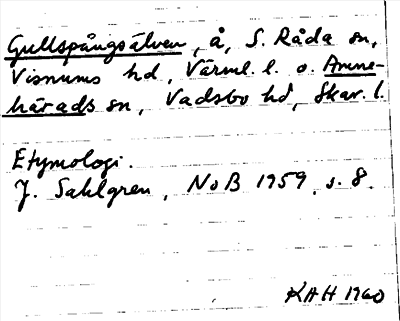 Gullspångsälven, å, S. Råda sn,
Visnums hd, Värml. l. o. Amne-
härads sn, Vadsbo hd, Skar. l.
Etymologi.
J. Sahlgren, NoB 1959, s. 8.
KHH 1960